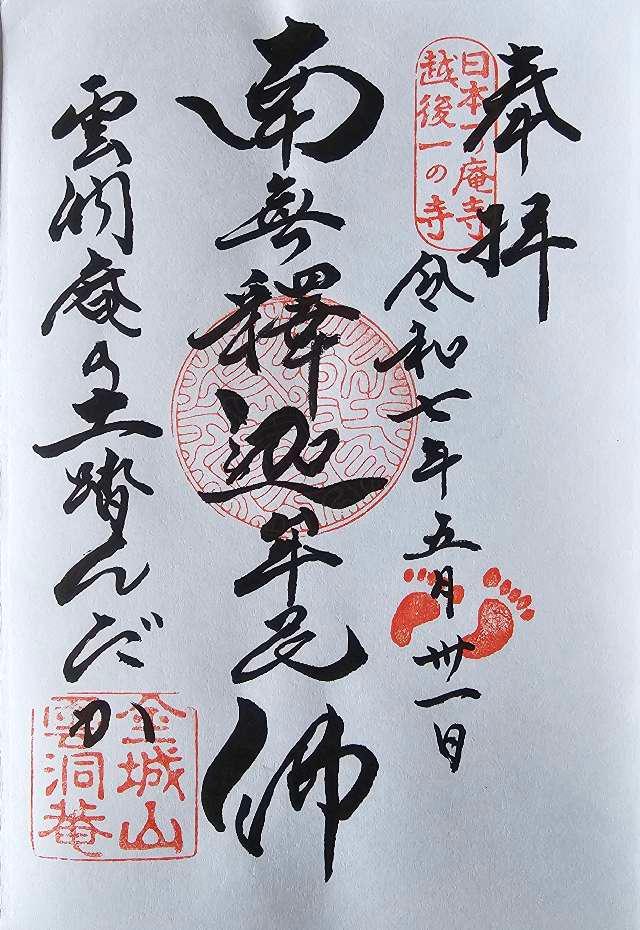 奉拝
日本一の庵寺
越後一の寺
令和七年五月卅一日
南無釋迦牟尼佛
雲洞庵の土踏んだか
金城山
雲洞菴